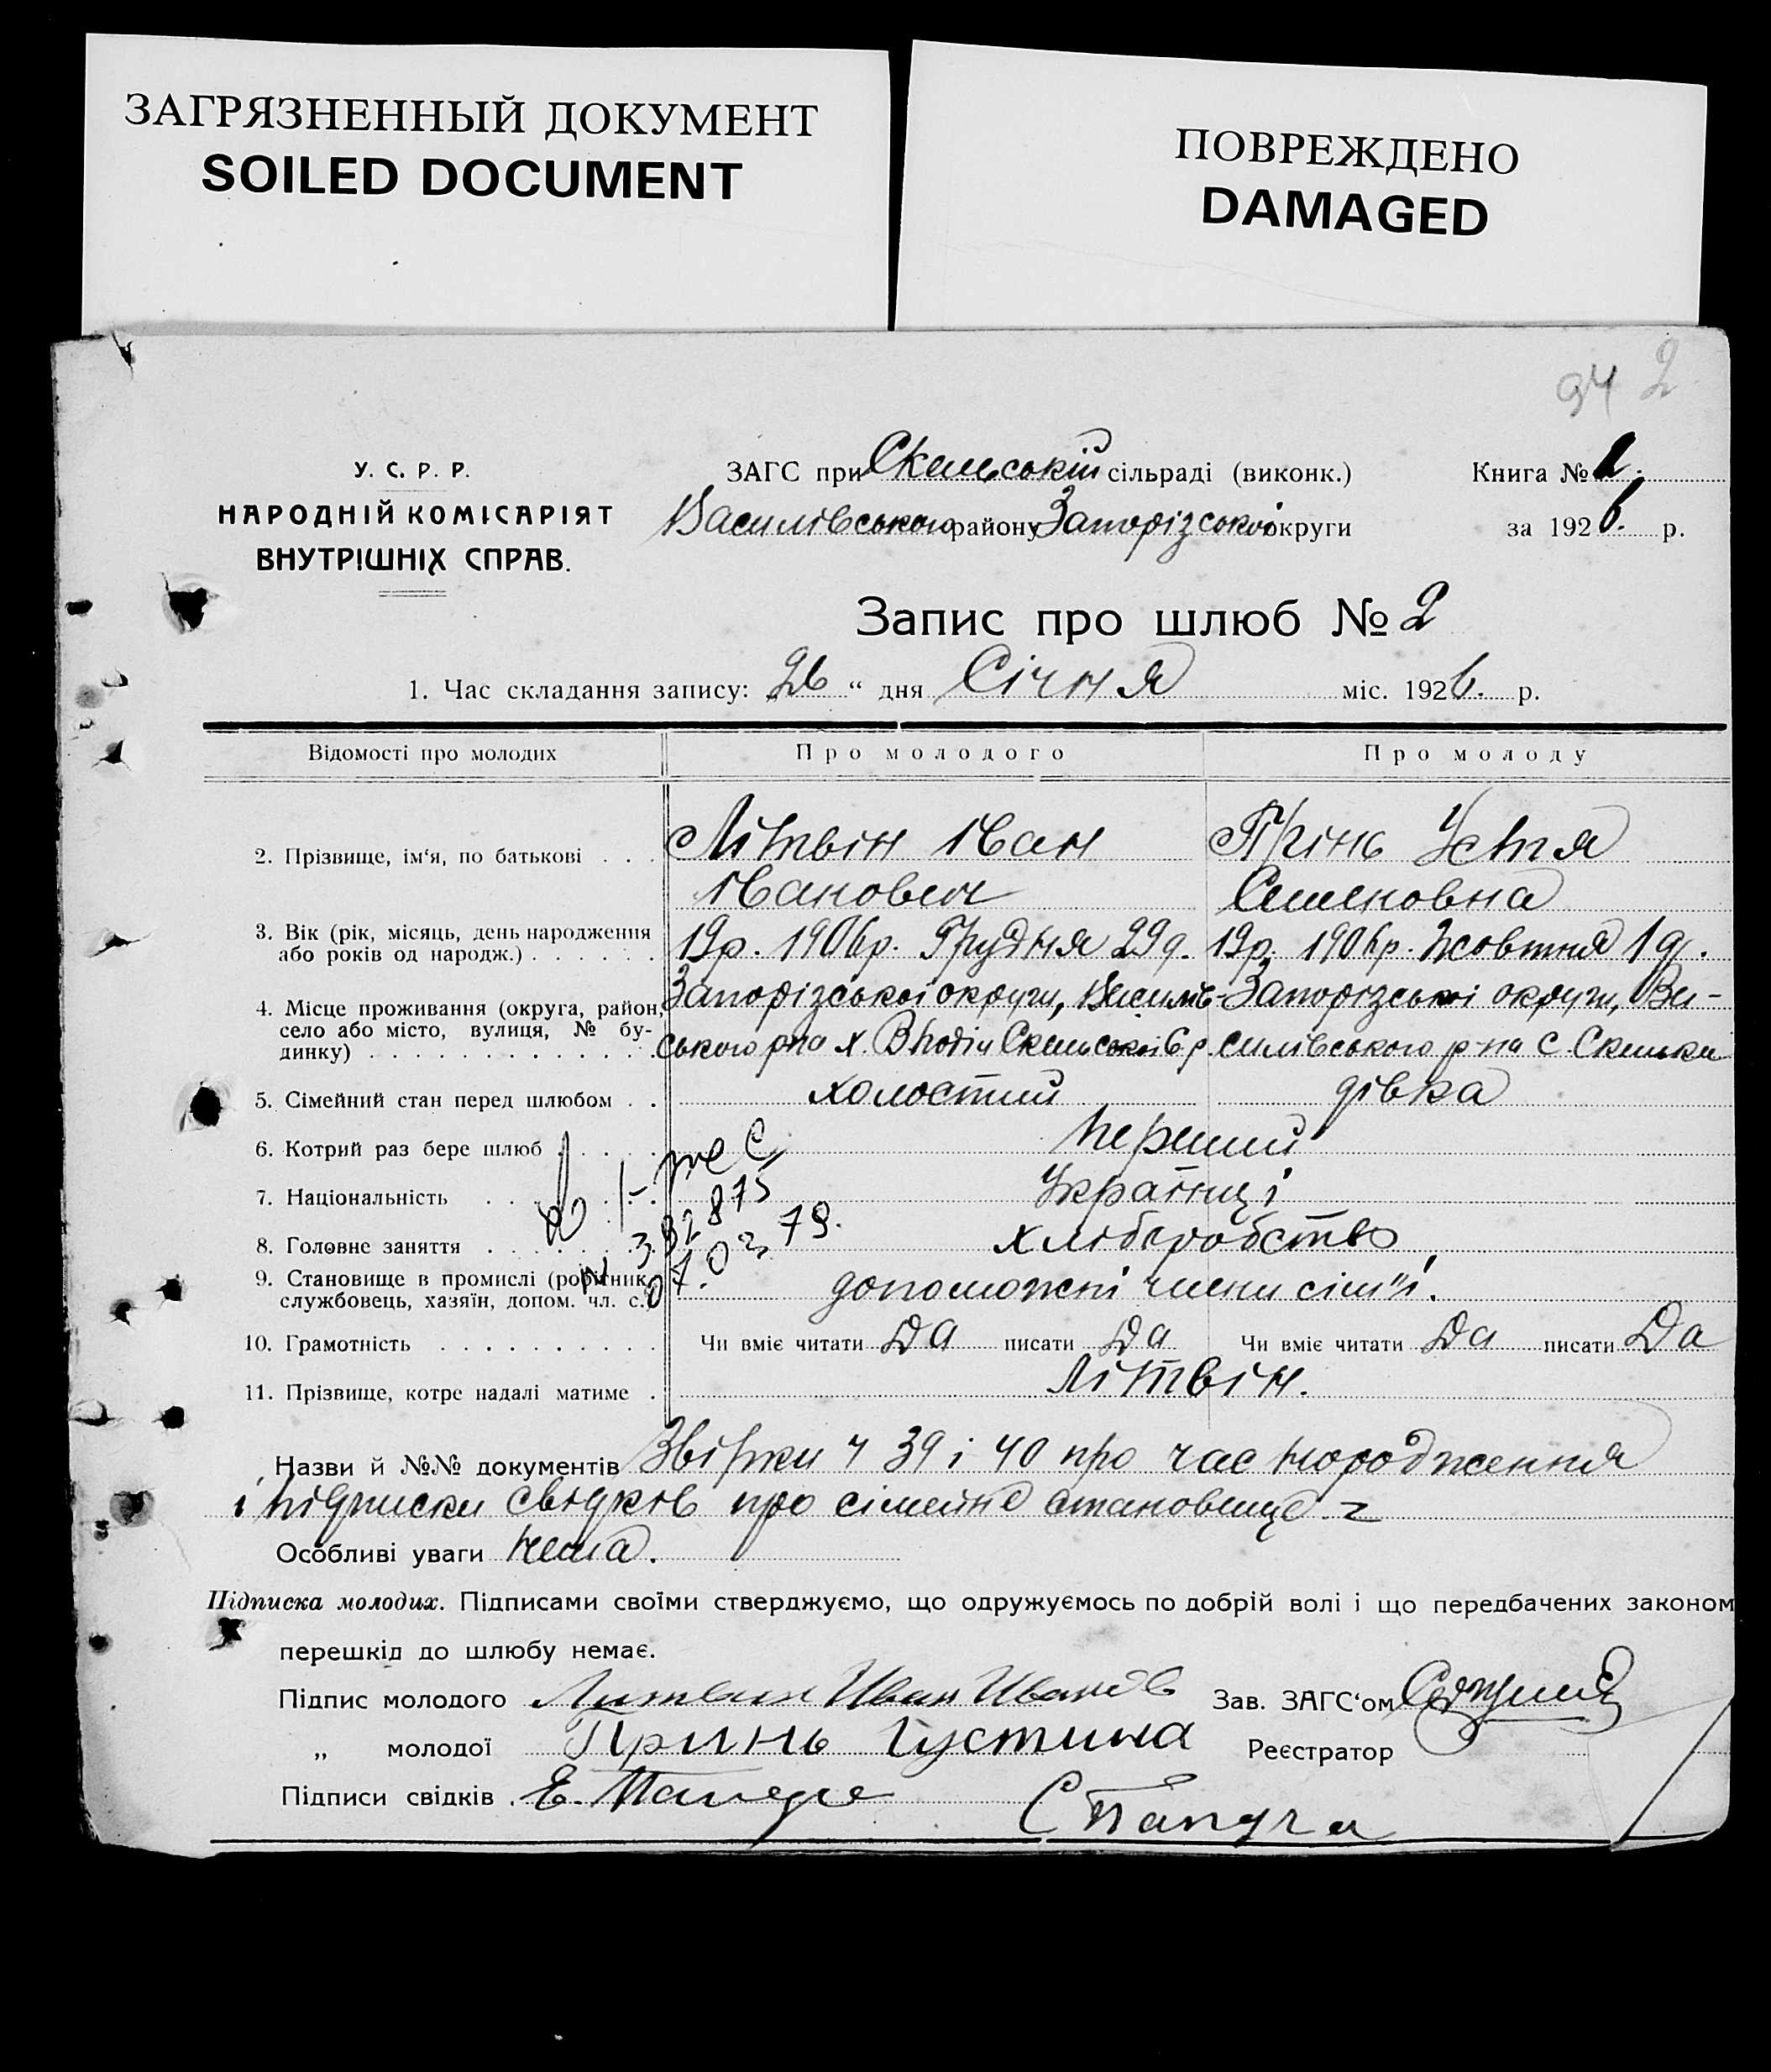 ЗАГРЯЗНЕННЫЙ ДОКУМЕНТ
SOILED DOCUMENT
ПОВРЕЖДЕНО
DAMAGED
94 2
У. С. Р. Р.
НАРОДНІЙ КОМІСАРІЯТ
ВНУТРІШНІХ СПРАВ.
ЗАГС при Скельській сільраді (виконк.)
Василівського району Запорізької округи
Книга № 1.
за 1926. р.
Запис про шлюб № 2
1. Час складання запису: 26 “ дня Січня міс. 1926. р.
Відомості про молодих Про молодого Про молоду
2. Прізвище, ім‘я, по батькові . . . Літвін Іван Прінь Устя
Іванович Семеновна
3. Вік (рік, місяць, день народження 19р. 1906р. Грудня 29д. 19р. 1906р. Жовтня 1д.
або років од народж.) . . . . . .
4. Місце проживання (округа, район, Запорізської округи, Василів- Запорізської округи, Ва-
село або місто, вулиця, № бу- ського р-на х. Скельської с р. силівського р-на с. Скельки
динку) . . . . . . . . . . . . .
5. Сімейний стан перед шлюбом . . холостий дівка
6. Котрий раз бере шлюб . . . . перший
7. Національність . . . . . . Українці
8. Головне заняття . . . . . . . хліборобство
9. Становище в промислі (робітник, допоможні члени сім"ї.
службовець, хазяїн, допом. чл. с.)
№ 392875
07.03 79.
10. Грамотність . . . . . . . . . . Чи вміє читати Да писати Да Чи вміє читати Да писати Да
11. Прізвище, котре надалі матиме . Літвін.
Назви й №№ документів Звірки ч 39 і 40 про час народження
і підписки свідків про сімейне становище
Особливі уваги нема.
Підписка молодих. Підписами своїми стверджуємо, що одружуємось по добрій волі і що передбачених законом
перешкід до шлюбу немає.
Підпис молодого Литвин Иван Иванов Зав. ЗАГС‘ом
„ молодої Принь Густина Реєстратор
Підписи свідків . Е.
С Папуга